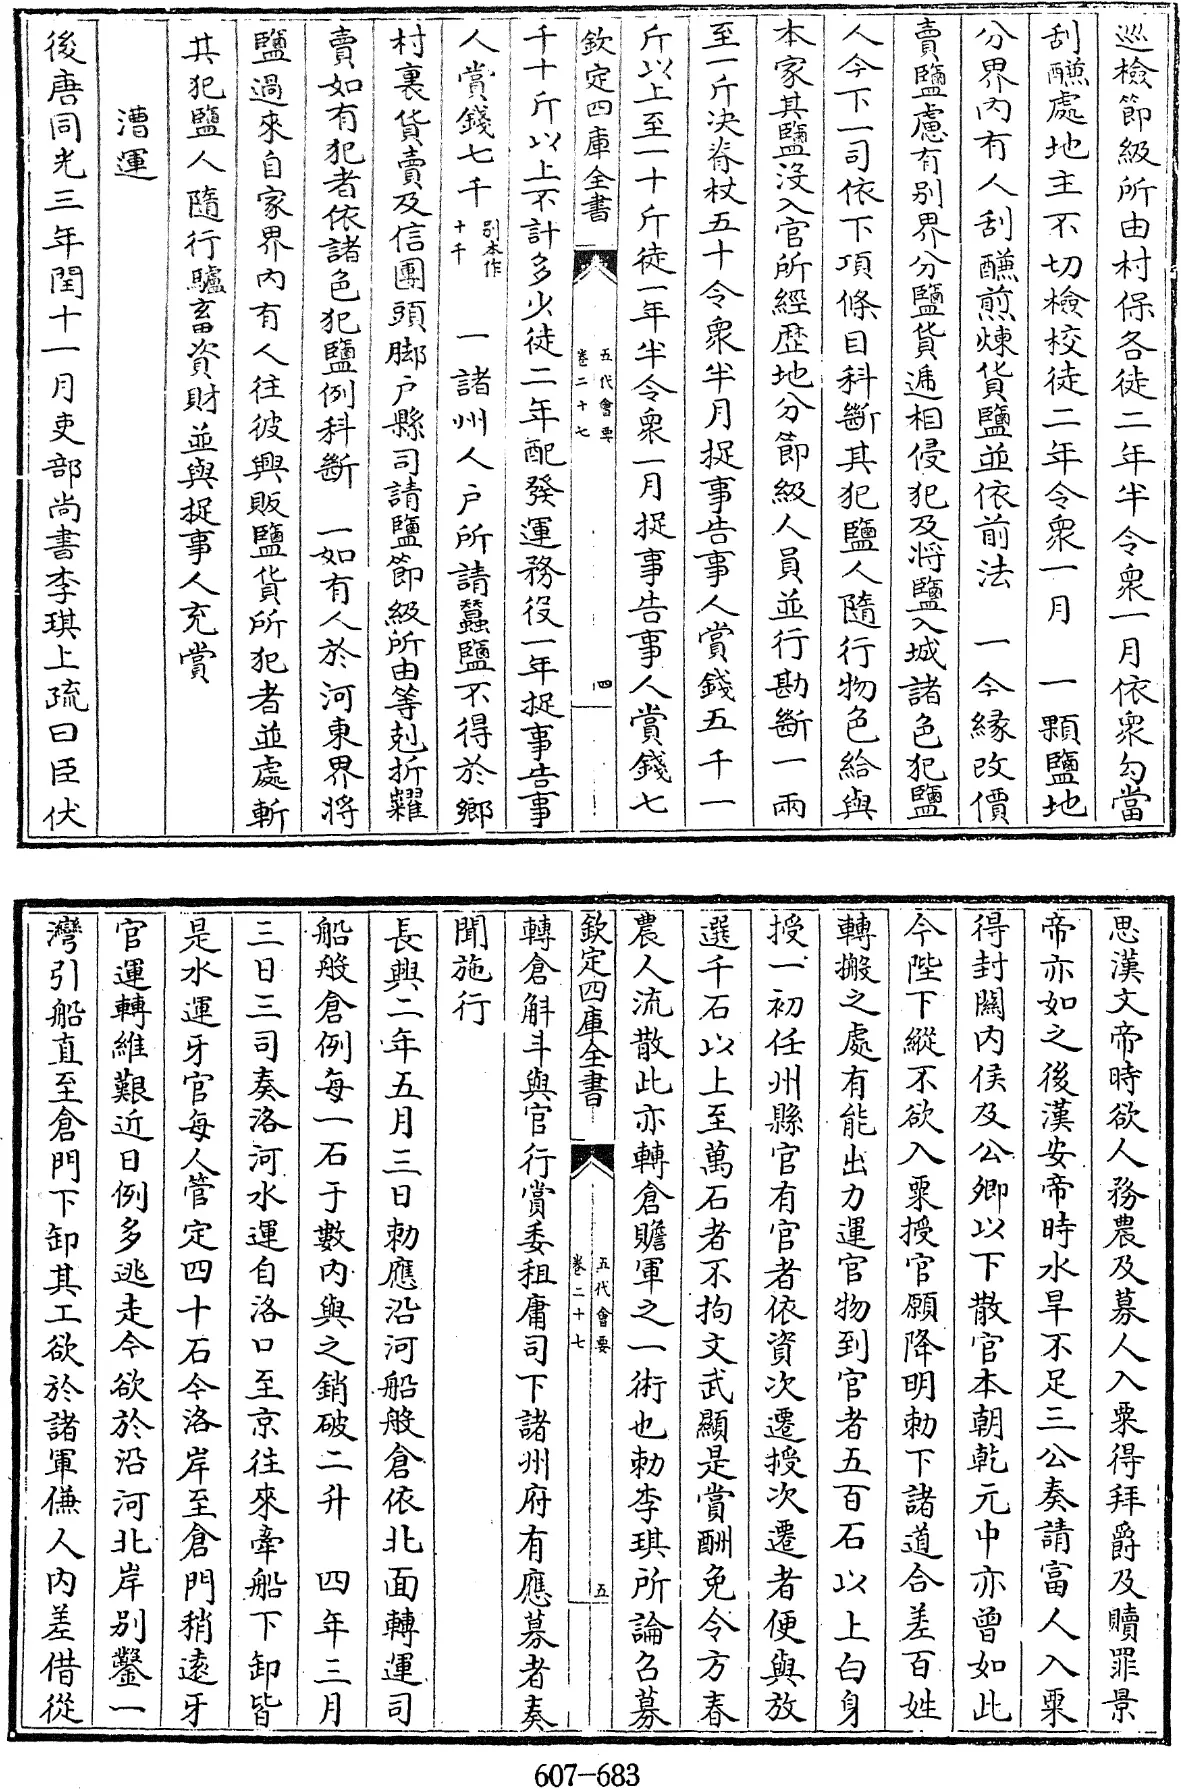 巡檢節級所由村保各徒二年半令衆一月依衆勾當
刮鹻處地主不切檢校徒二年令衆一月　一顆鹽地
分界内有人刮鹻煎煉貨鹽並依前法　一今縁改價
賣鹽慮有别界分鹽貨遞相侵犯及將鹽入城諸色犯鹽
人今下一司依下項條目科斷其犯鹽人隨行物色給與
本家其鹽没入官所經歴地分節級人員並行勘斷一兩
至一斤决脊杖五十令衆半月捉事告事人賞錢五千一
斤以上至一十斤徒一年半令衆一月捉事告事人賞錢七
欽定四庫全書
五代會要
卷二十七
四
千十斤以上不計多少徒二年配發運務役一年捉事告事
人賞錢七千别本作十千　一諸州人户所請蠶鹽不得於鄉
村裏貨賣及信團頭脚户縣司請鹽節級所由等尅折糶
賣如有犯者依諸色犯鹽例科斷　一如有人於河東界將
鹽過來自家界内有人往彼興販鹽貨所犯者並處斬
其犯鹽人隨行驢畜資財並與捉事人充賞
漕運
後唐同光三年閏十一月吏部尚書李琪上疏曰臣伏
思漢文帝時欲人務農及募人入粟得拜爵及贖罪景
帝亦如之後漢安帝時水旱不足三公奏請富人入粟
得封關内侯及公卿以下散官本朝乾元中亦曾如此
今陛下縱不欲入粟授官願降明勅下諸道合差百姓
轉搬之處有能出力運官物到官者五百石以上白身
授一初任州縣官有官者依資次遷授次遷者便與放
選千石以上至萬石者不拘文武顯是賞酬免令方春
農人流散此亦轉倉贍軍之一術也勅李琪所論召募
欽定四庫全書
五代會要
卷二十七
五
轉倉斛斗與官行賞委租庸司下諸州府有應募者奏
聞施行
長興二年五月三日勅應沿河船般倉依北面轉運司
船般倉例每一石于數内與之銷破二升　四年三月
三日三司奏洛河水運自洛口至京往來牽船下卸皆
是水運牙官每人管定四十石今洛岸至倉門稍遠牙
官運轉維艱近日例多逃走今欲於沿河北岸别鑿一
灣引船直至倉門下卸其工欲於諸軍傔人内差借從
607-683